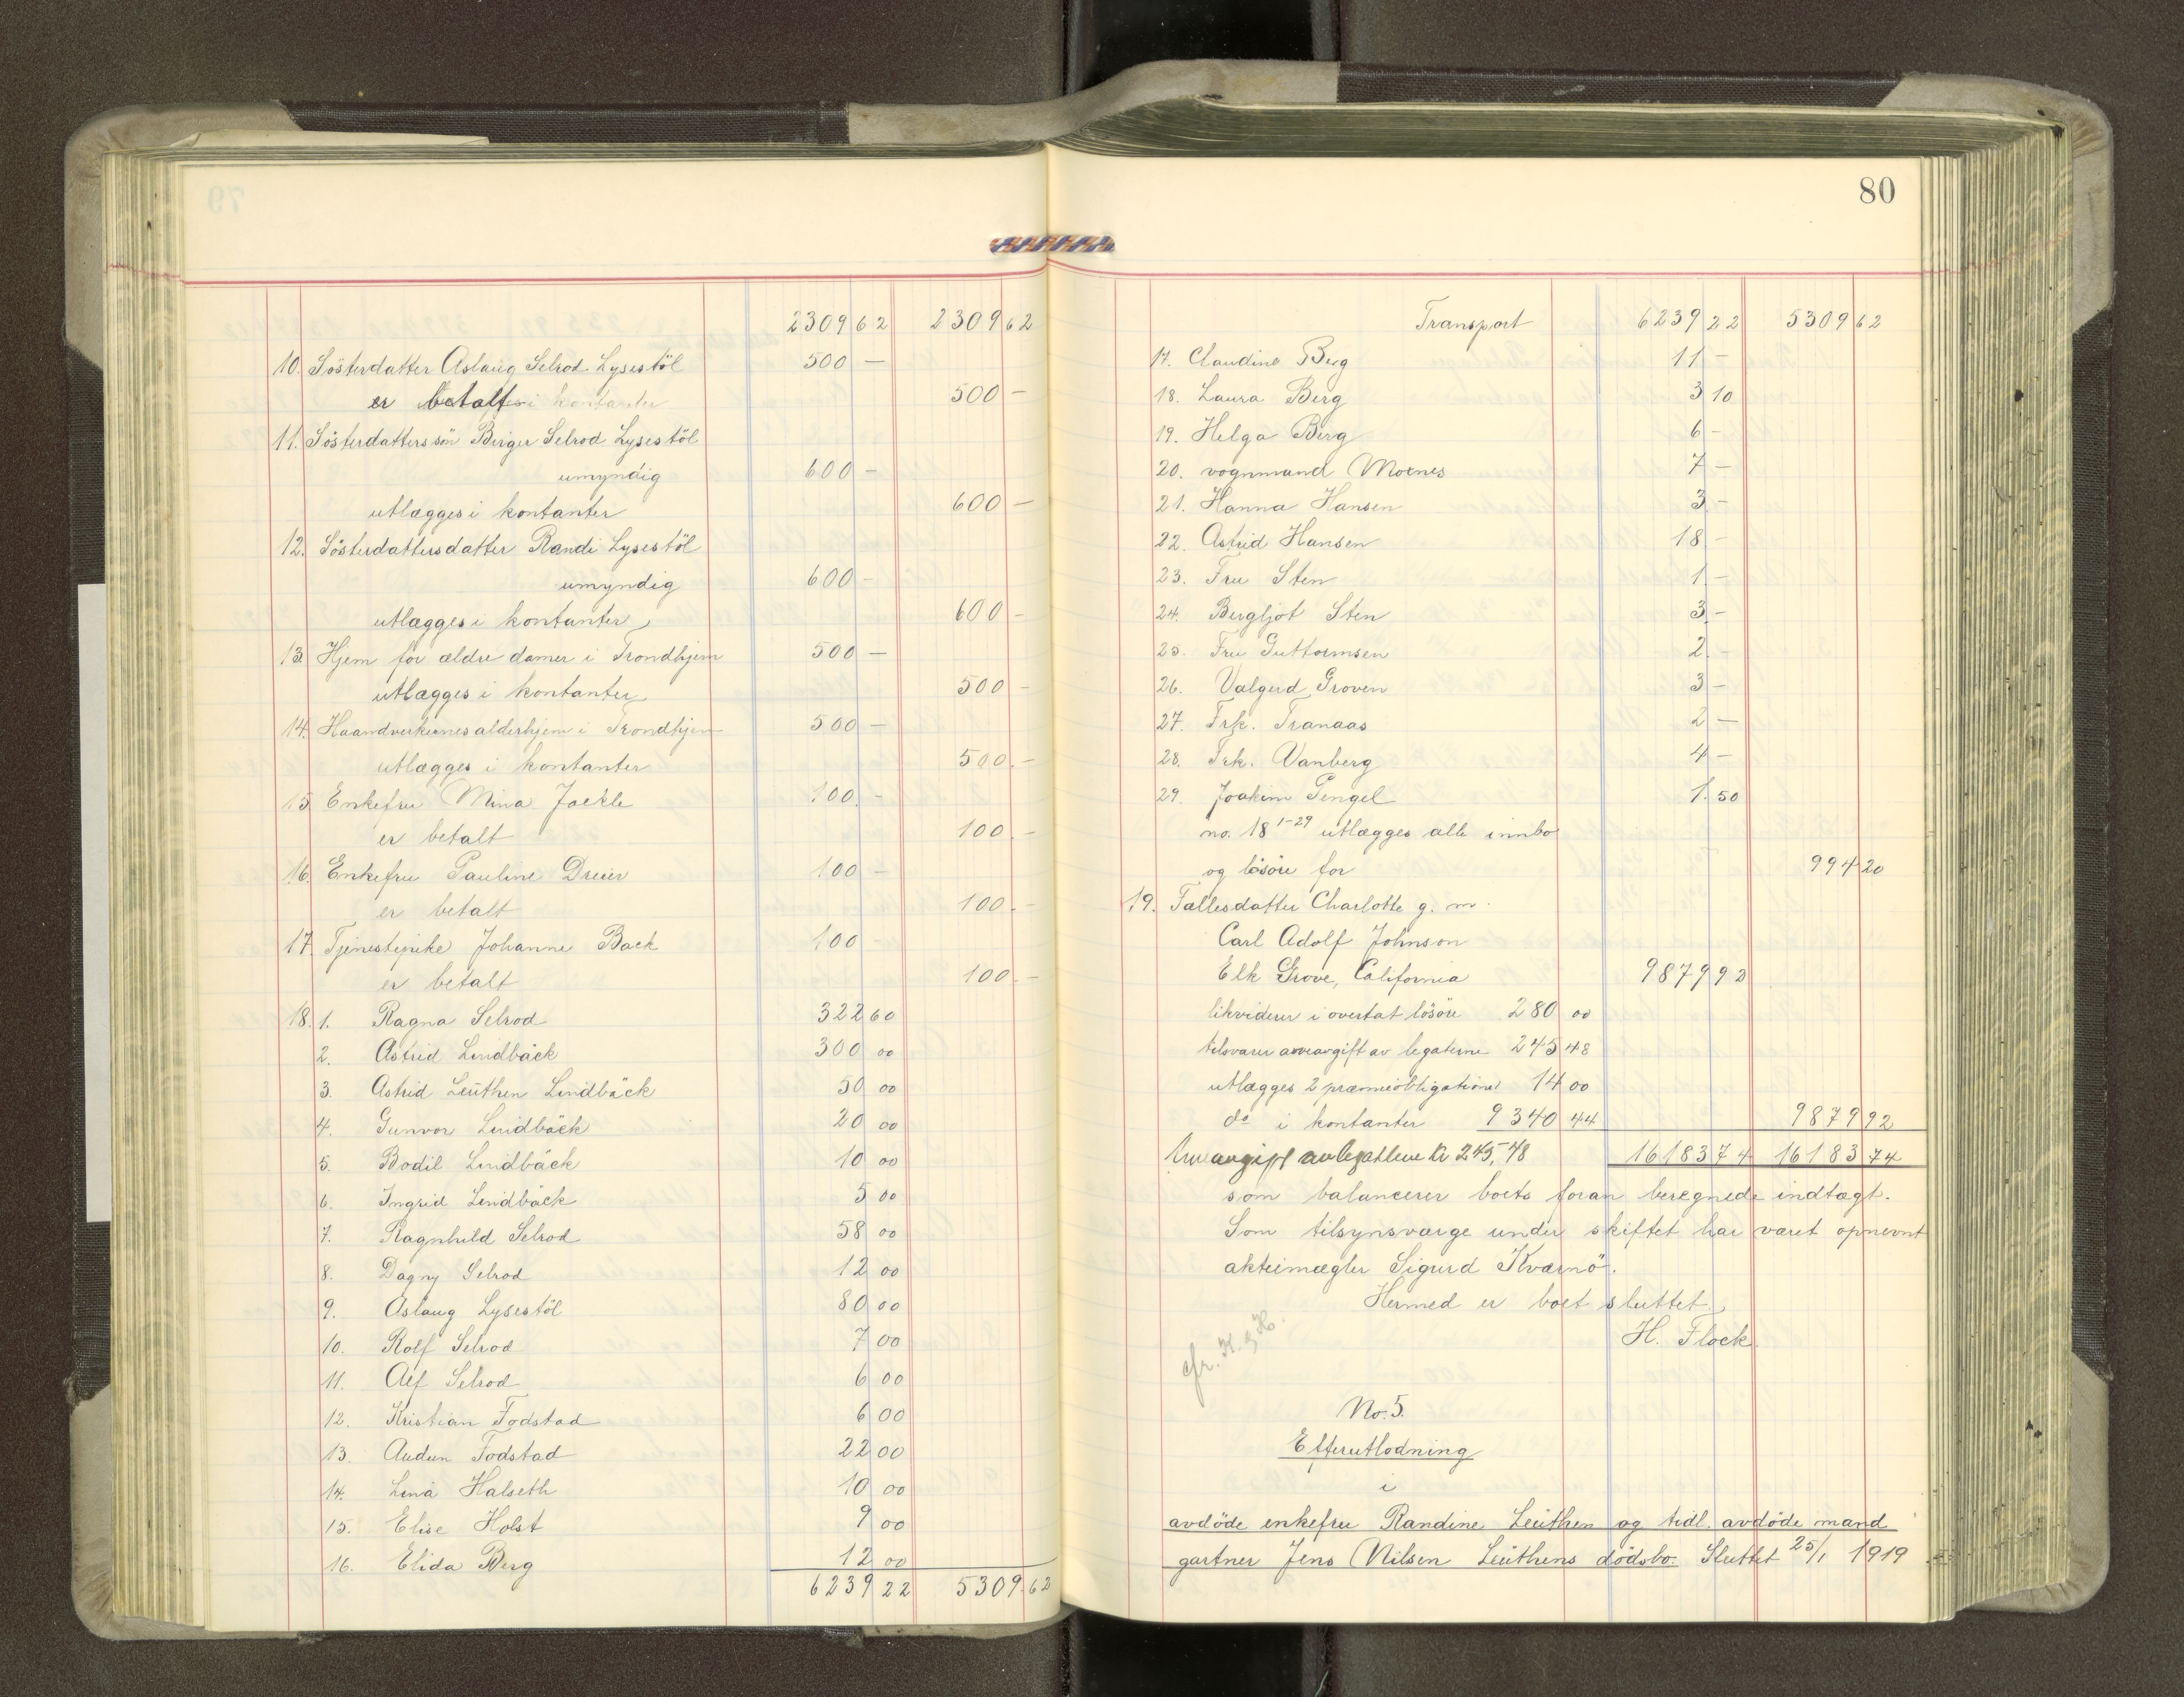 2309 62 2309 62
10. Sösterdatter Aslaug Selrod Lysestöl 500 —
er betalt i kontanter 500 —
11. Sösterdatterssön Birger Selrod Lysestöl
umyndig 600 —
utlægges i kontanter 600 —
12. Sösterdattersdatter Randi Lysestöl
umyndig 600 —
utlægges i kontanter 600 —
13. Hjem for ældre damer i Trondhjem 500 —
utlægges i kontanter 500 —
14. Haandverkernes alderhjem i Trondhjem 500 —
utlægges i kontanter 500. —
15. Enkefru Mina Jaekle 100. —
er betalt 100. —
16. Enkefru Pauline Dreier 100 —
er betalt 100. —
17. Tjenestepike Johanne Back 100 —
er betalt 100. —
18. 1. Ragna Selrod 322 60
2. Astrid Lindbäck 300 00
3. Astrid Leüthen Lindbäck 50 00
4. Gunvor Lindbäck 20 00
5. Bodil Lindbäck 10 00
6. Ingrid Lindbäck 5 00
7. Ragnhild Selrod 58 00
8. Dagny Selrod 12 00
9. Aslaug Lysestöl 80 00
10. Rolf Selrod 7 00
11. Alf Selrod 6 00
12. Kristian Fodstad 6 00
13. Audun Fodstad 22 00
14. Lina Halseth 10 00
15. Elise Holst 9 00
16. Elida Berg 12 00
6239 22 5309. 62
80
Transport 6239 22 5309 62
17. Claudine Berg 11 —
18. Laura Berg 3 10
19. Helga Berg 6 —
20. vognmand Moxnes 7 —
21. Hanna Hansen 3. —
22. Astrid Hansen 18 —
23. Fru Sten 1 —
24. Bergljot Sten 3. —
25. Fru Guttormsen 2. —
26. Valgerd Groven 3 —
27. Frk. Tranaas 2 —
28. Frk. Vanberg 4 —
29. Joakim Pengel 1. 50
no. 18 1-29 utlægges alle innbo
og lösöre for 994 20
19. Fællesdatter Charlotte g. m.
Carl Adolf Johnson
Elk Grove, California 9879 92
likviderer i overtat lösöre 280 00
tilsvarer arveavgift av legaterne 245 48
utlægges 2 præmieobligationer 14 00
do i kontanter 9340 44 9879 92
Arveavgift av legatene kr 245,48 16183 74 16183 74
som balancerer boets foran beregnede indtægt.
Som tilsynsværge under skiftet har været opnevnt
aktiemægler Sigurd Kværnö.
Hermed er boet sluttet.
H. Flock
No. 5.
Efterutlodning
i
avdöde enkefru Randine Leüthen og tidl. avdöde mand
gartner Jens Nilsen Leüthens dödsbo. Sluttet 25/1 1919